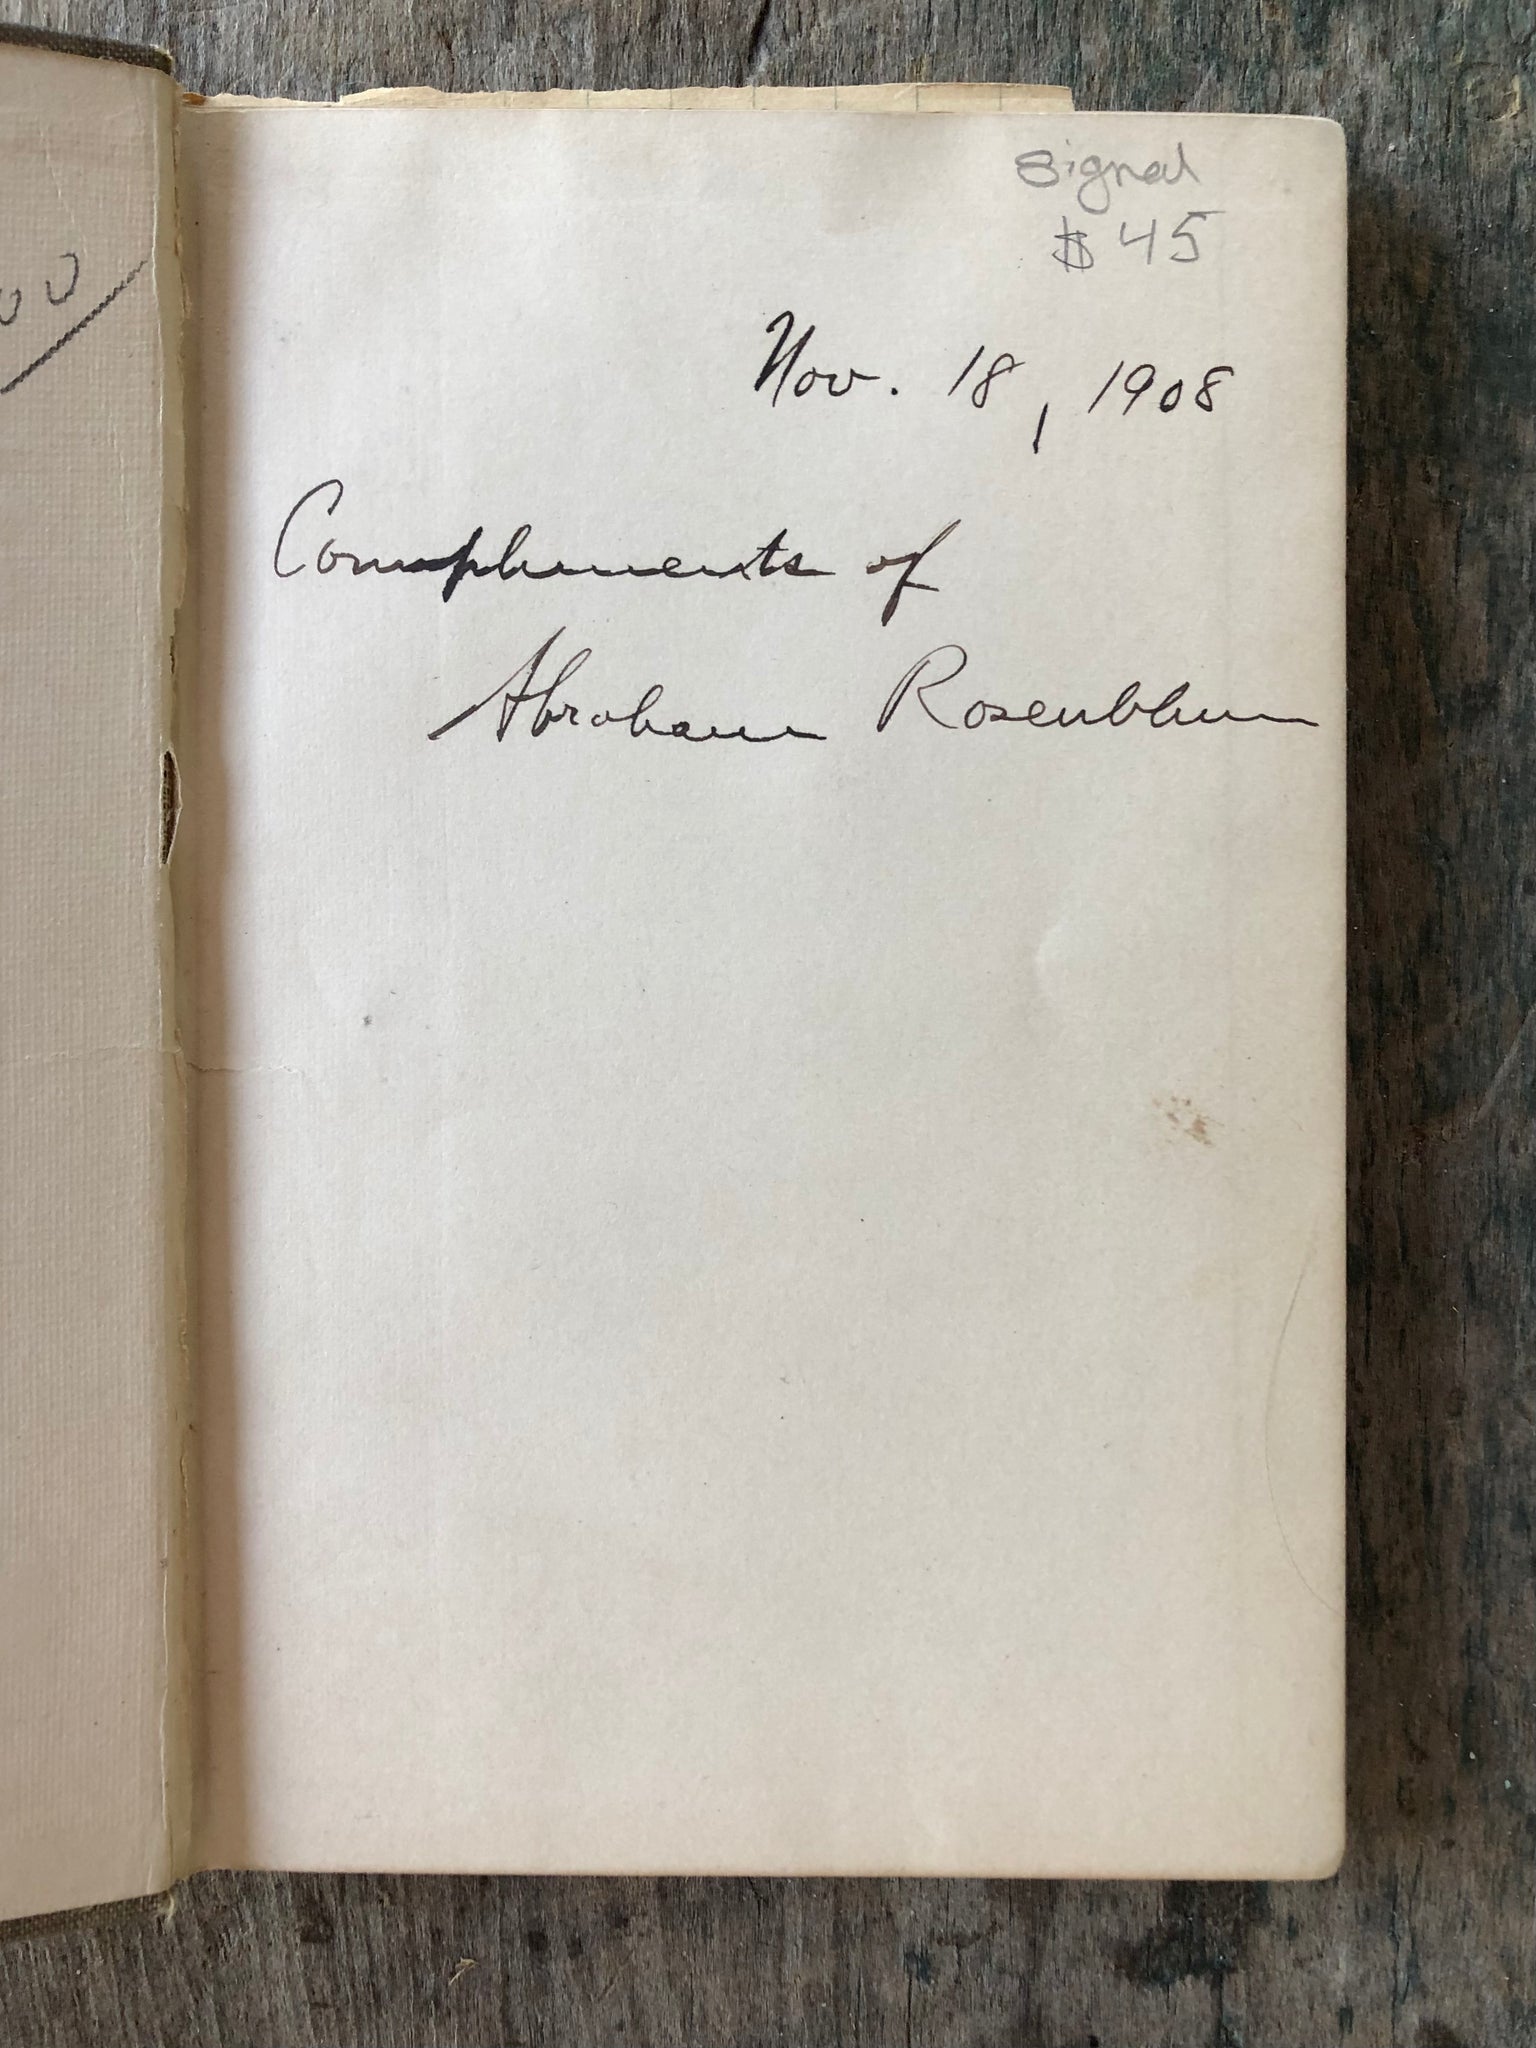 00
signed
$45
Nov. 18, 1908
Compliments of
Abraham Rosenblum